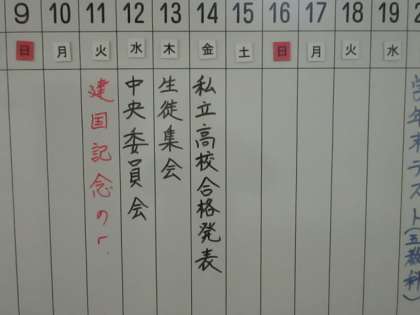 9 10 11 12 13 14 15 16 17 18 19 2
日 月 火 水 木 金 土 日 月 火 水
建国記念の
中央委員会
生徒集会
私立高校合格発表
学年末テスト(五教科)